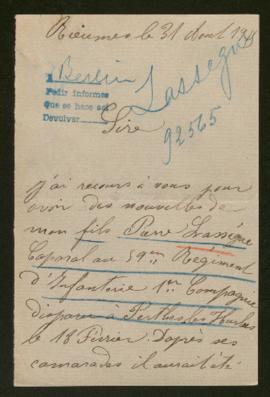 Rieumes le 31 Aout 19
Berlin
Lassegue
Pedir informes
que se hace así
Devolver
Sire
92565
J'ai recours à vous pour
avoir des nouvelles de
mon fils Pierre Lassègue
Caporal au 59em Régiment
d'Infanterie 1re Compagnie
disparu à Perthes les Hurlus
le 18 Février. Daprès ses
camarades il aurait été